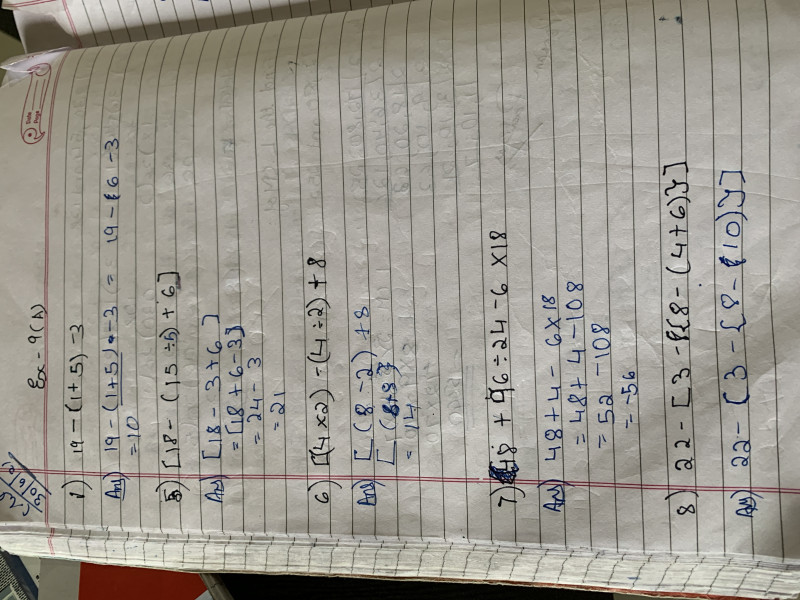 Ex - 9(A)
Date
Page
1) 19 - (1+5) - 3
Ans) 19 - (1+5) - 3 = 19 - 6 - 3
= 10
5) [18 - (15 ÷ 5) + 6]
Ans) [18 - 3 + 6]
= [18 + 6 - 3]
= 24 - 3
= 21
6) [(4×2) - (4÷2) + 8
Ans) [(8 - 2) + 8
= 14
7) 48 + 96 ÷ 24 - 6 × 18
Ans) 48 + 4 - 6 × 18
= 48 + 4 - 108
= 52 - 108
= -56
8) 22 - [3 - {8 - (4+6)}]
Ans) 22 - [3 - {8 - (10)}]